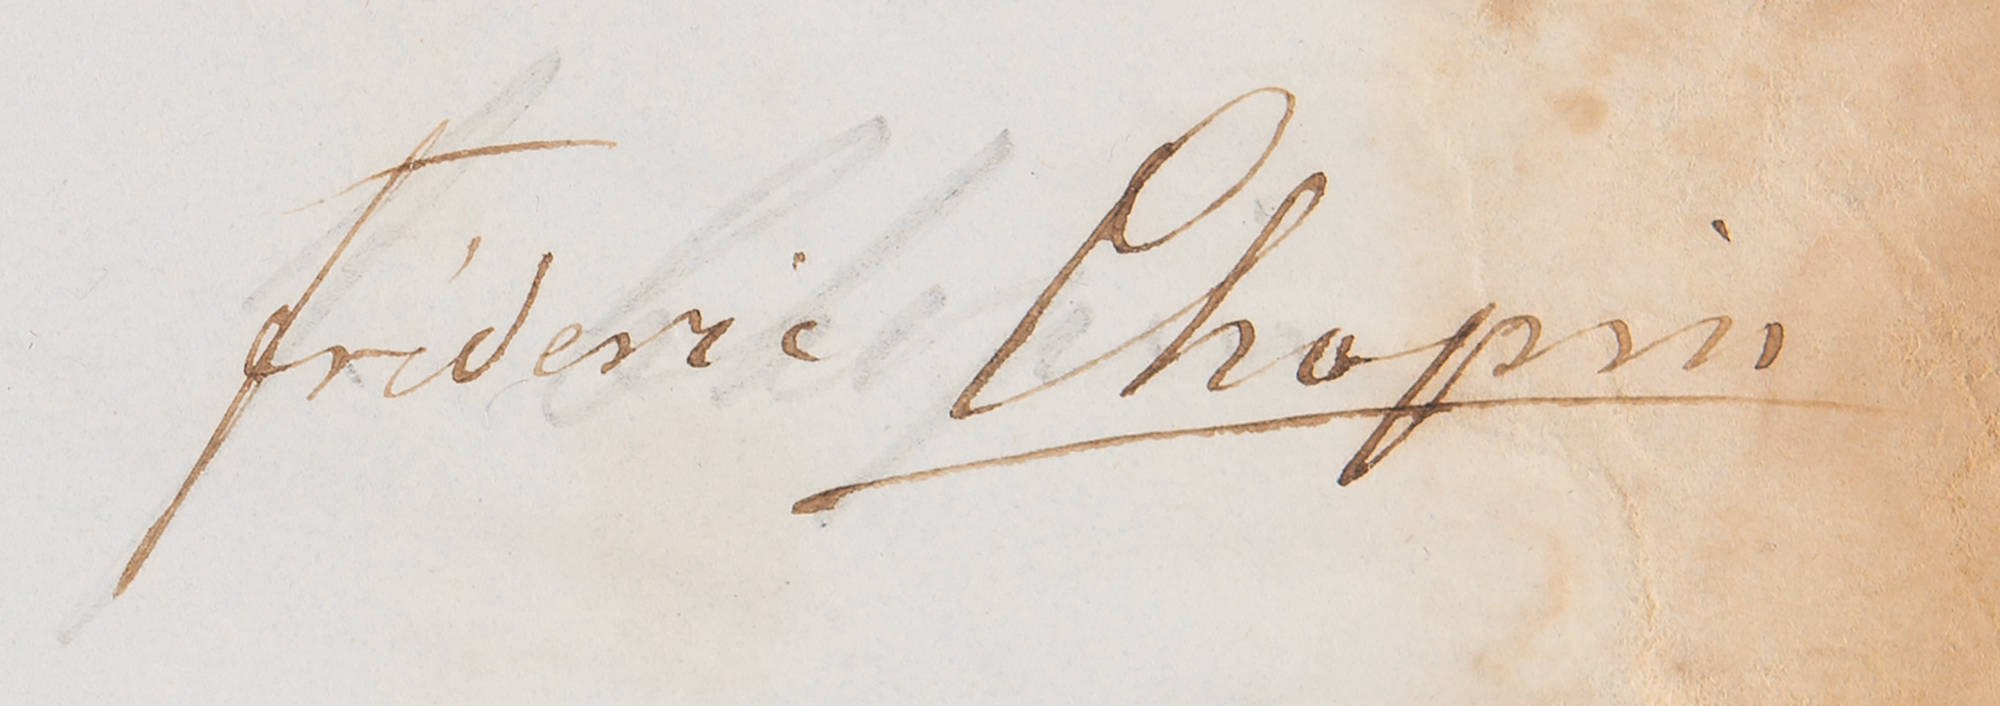 Fréderic Chopin